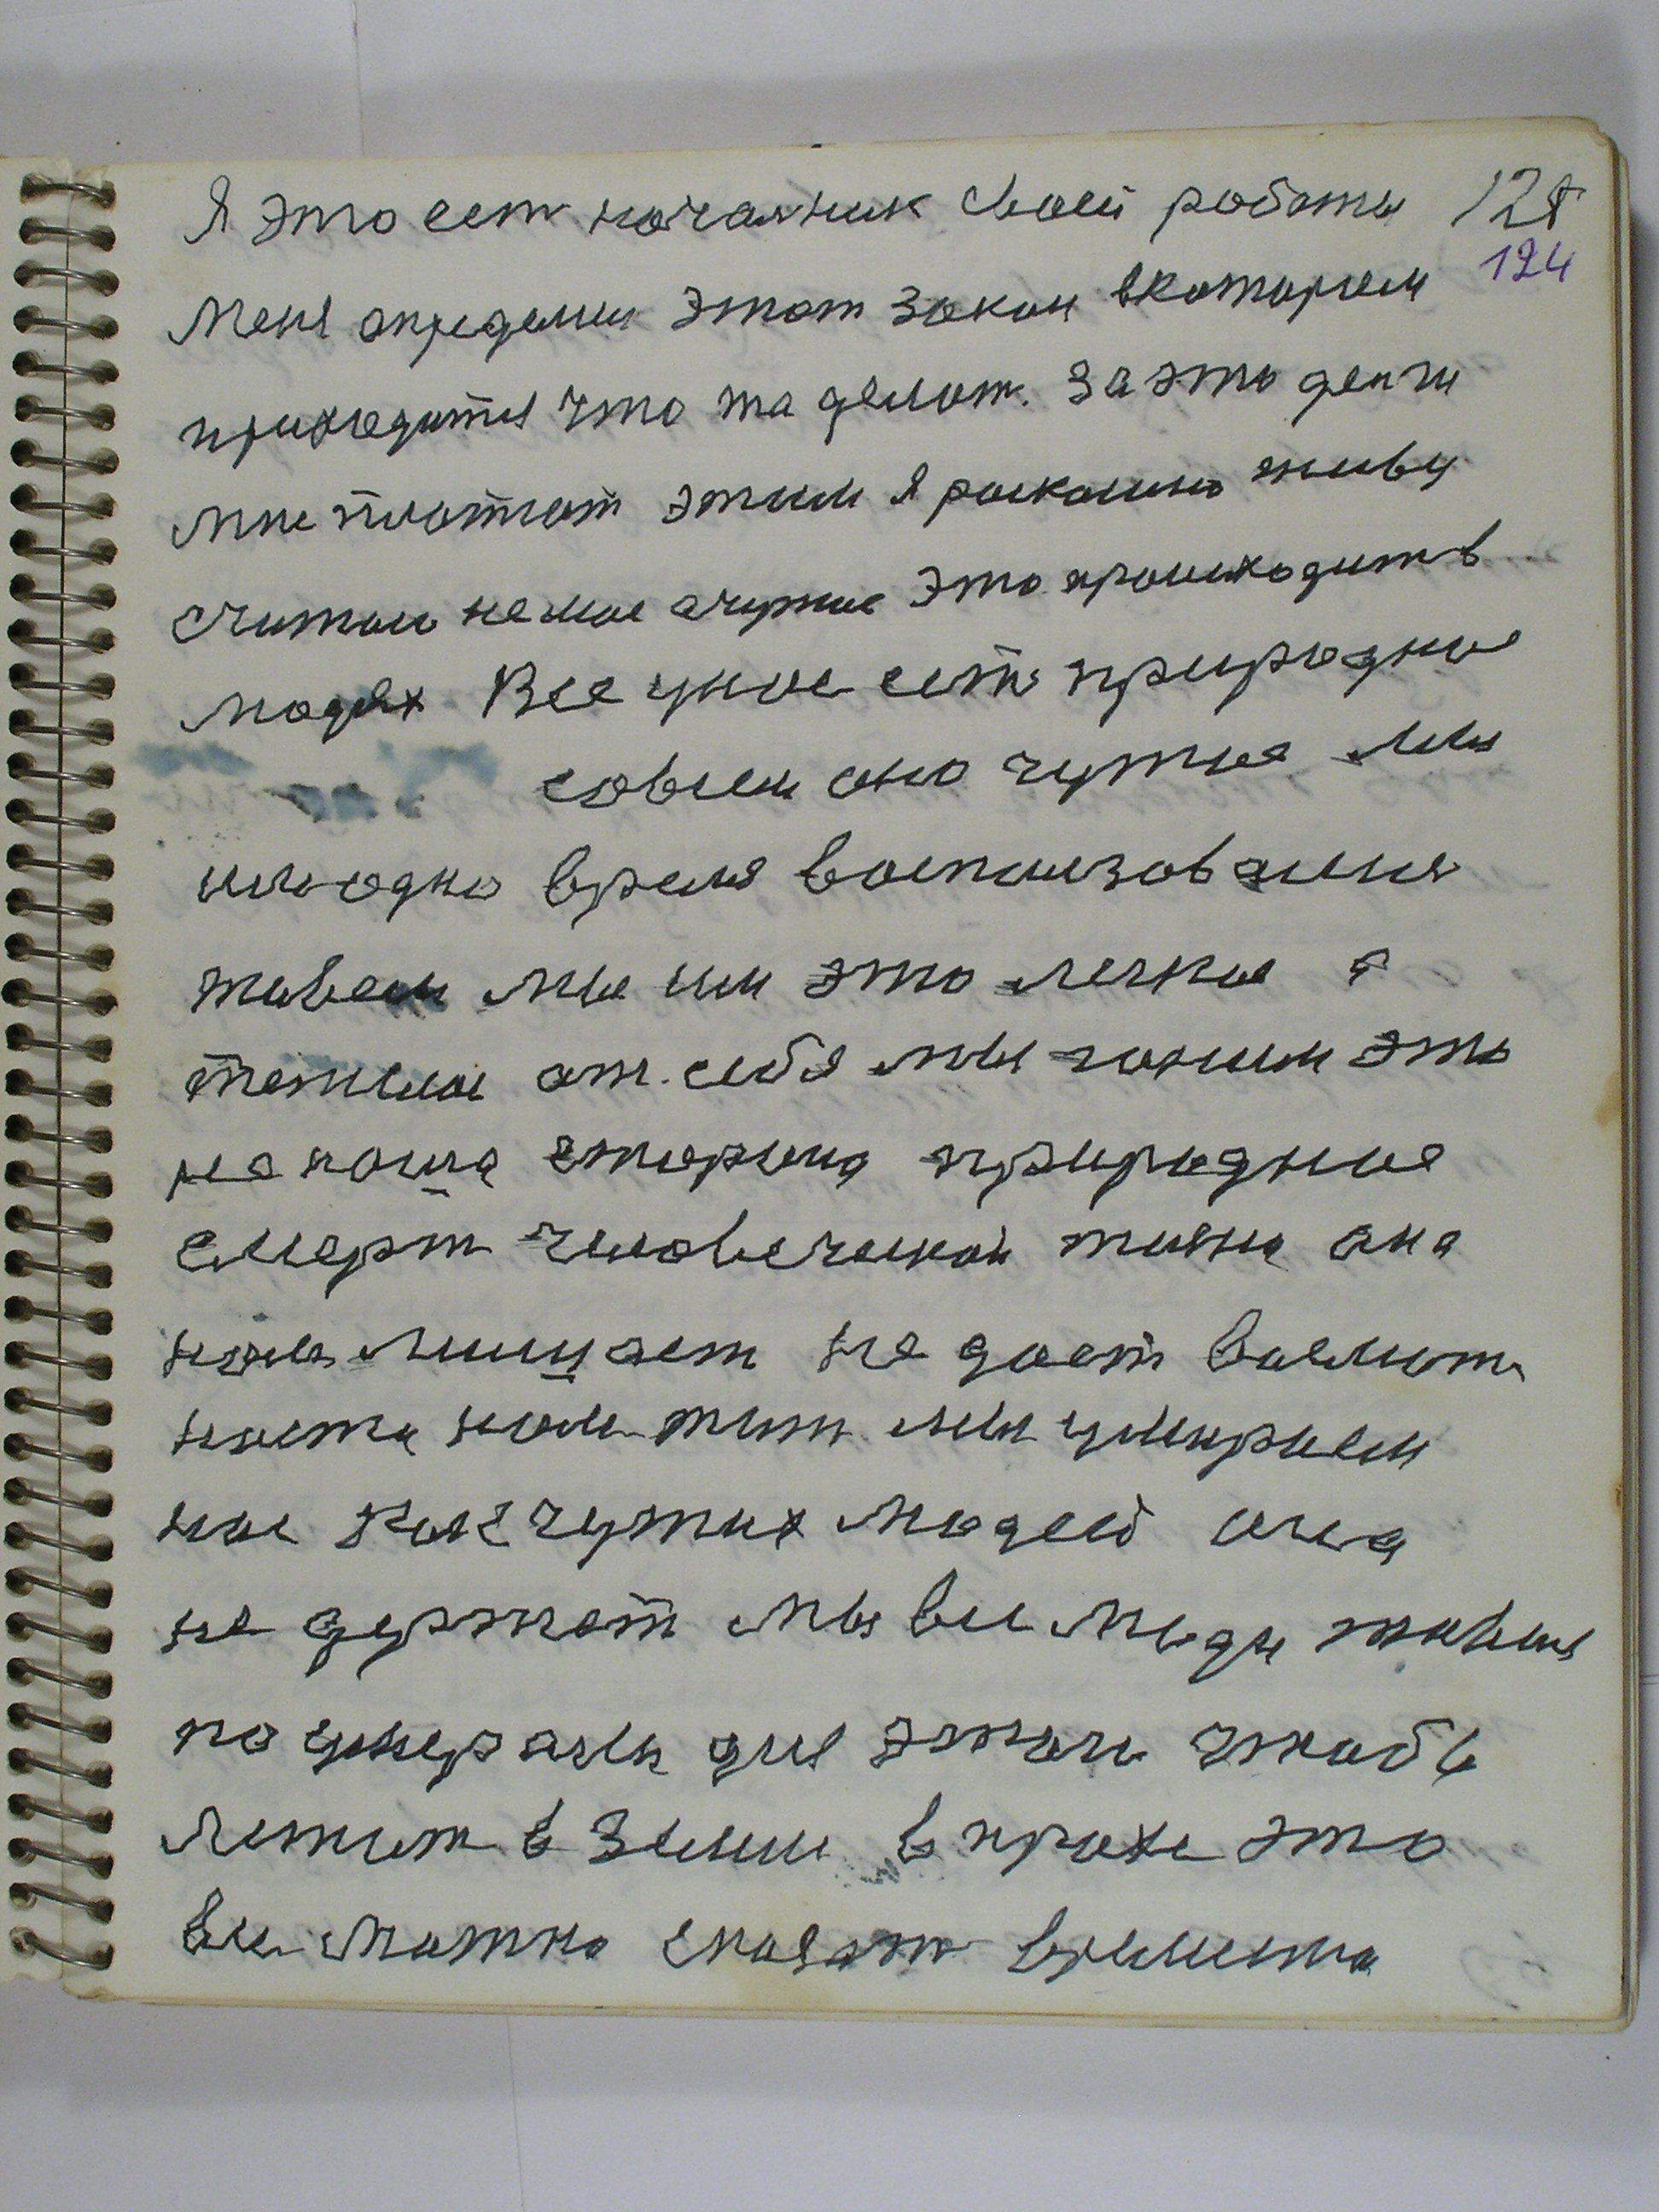 Я это ест началник своей работы 128
124
меня определил этот закон вкотором
приходится что та делат. За это денги
мне платют этим я роскошно живу
считаю не мое ачужое это происходит в
людях Все унас ест природное
совсем оно чужое мы
им одно время воспользовалися
живем мы им это легкое а
тяжелое от себя мы гоним это
не наша сторона природное
смерт человеческой жизни она
нам мешает не дает
нам жит мы умираем
нас как чужих людей она
не держит мы все люди живыя
по умирали для этого чтобы
лежат в земли в прахе это
все можно сказат времено